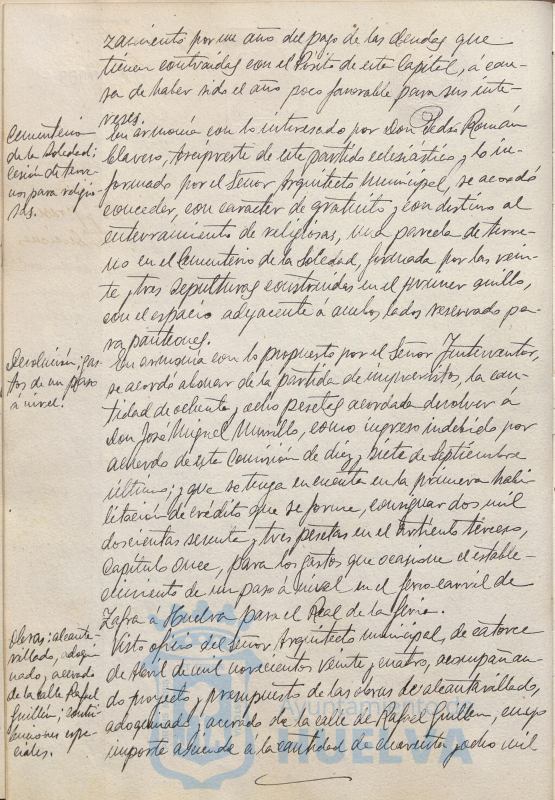 zamiento por un año del pago de las deudas que
tienen contraidas con el Pósito de esta Capital, a cau-
sa de haber sido el año poco favorable para sus inte-
reses.
Cementerio
de la Soledad:
cesión de terre-
nos para religio-
sas.
En armonía con lo interesado por Don Pedro Román
Clavero, Arcipreste de este partido eclesiástico y lo in-
formado por el Señor Arquitecto Municipal, se acordó
conceder, con carácter de gratuito y con destino al
enterramiento de religiosas, una parcela de terre-
no en el Cementerio de la Soledad, formada por las vein-
te y tres sepulturas construidas en el primer anillo,
con el espacio adyacente á ambos lados reservado pa-
ra panteones.
Devolución; gas-
tos de un paso
á nivel.
En armonía con lo propuesto por el Señor Interventor,
se acordó abonar de la partida de imprevistos, la can-
tidad de ochenta y ocho pesetas acordada devolver á
Don José Miguel Murillo, como ingreso indebido por
acuerdo de esta Comisión de diez y siete de Septiembre
último; y que se tenga en cuenta en la primera habi-
litación de crédito que se forme, consignar dos mil
doscientas setenta y tres pesetas en el Artículo tercero,
Capítulo Once, para los gastos que ocasione el estable-
cimiento de un paso á nivel en el ferro-carril de
Zafra á Huelva para el Real de la feria.
Obras; alcanta-
rillado, adoqui-
nado y acerado
de la calle Rafael
Guillén; contri-
buciones espe-
ciales.
Visto oficio del Señor Arquitecto municipal, de catorce
de Abril de mil novecientos veinte y cuatro, acompañan-
do proyecto y presupuesto de las obras de alcantarillado,
adoquinado y acerado de la calle de Rafael Guillén, cuyo
importe asciende á la cantidad de cuarenta y ocho mil
Ayuntamiento de
HUELVA